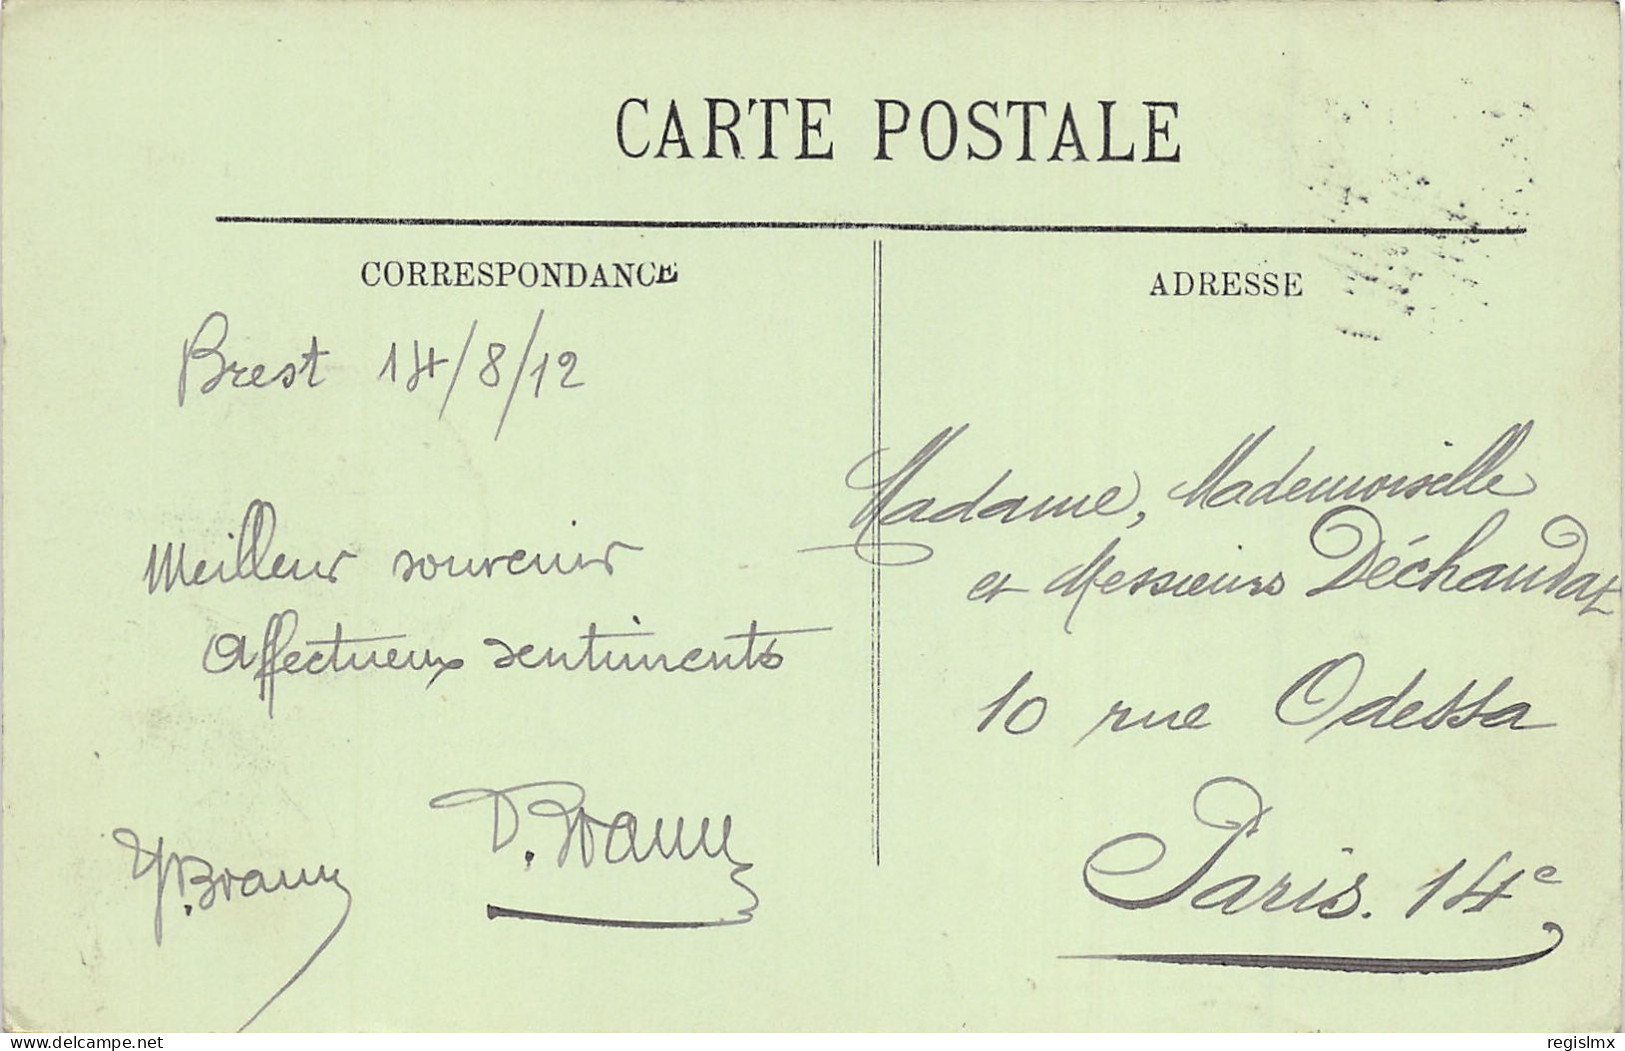 CARTE POSTALE
CORRESPONDANCE
Brest 14/8/12
Meilleur souvenir
Affectueux sentiments
Y. Braun
D. Braun
ADRESSE
Madame, Mademoiselle
et Messieurs Déchaudat
10 rue Odessa
Paris. 14e
delcampe.net
regislmx